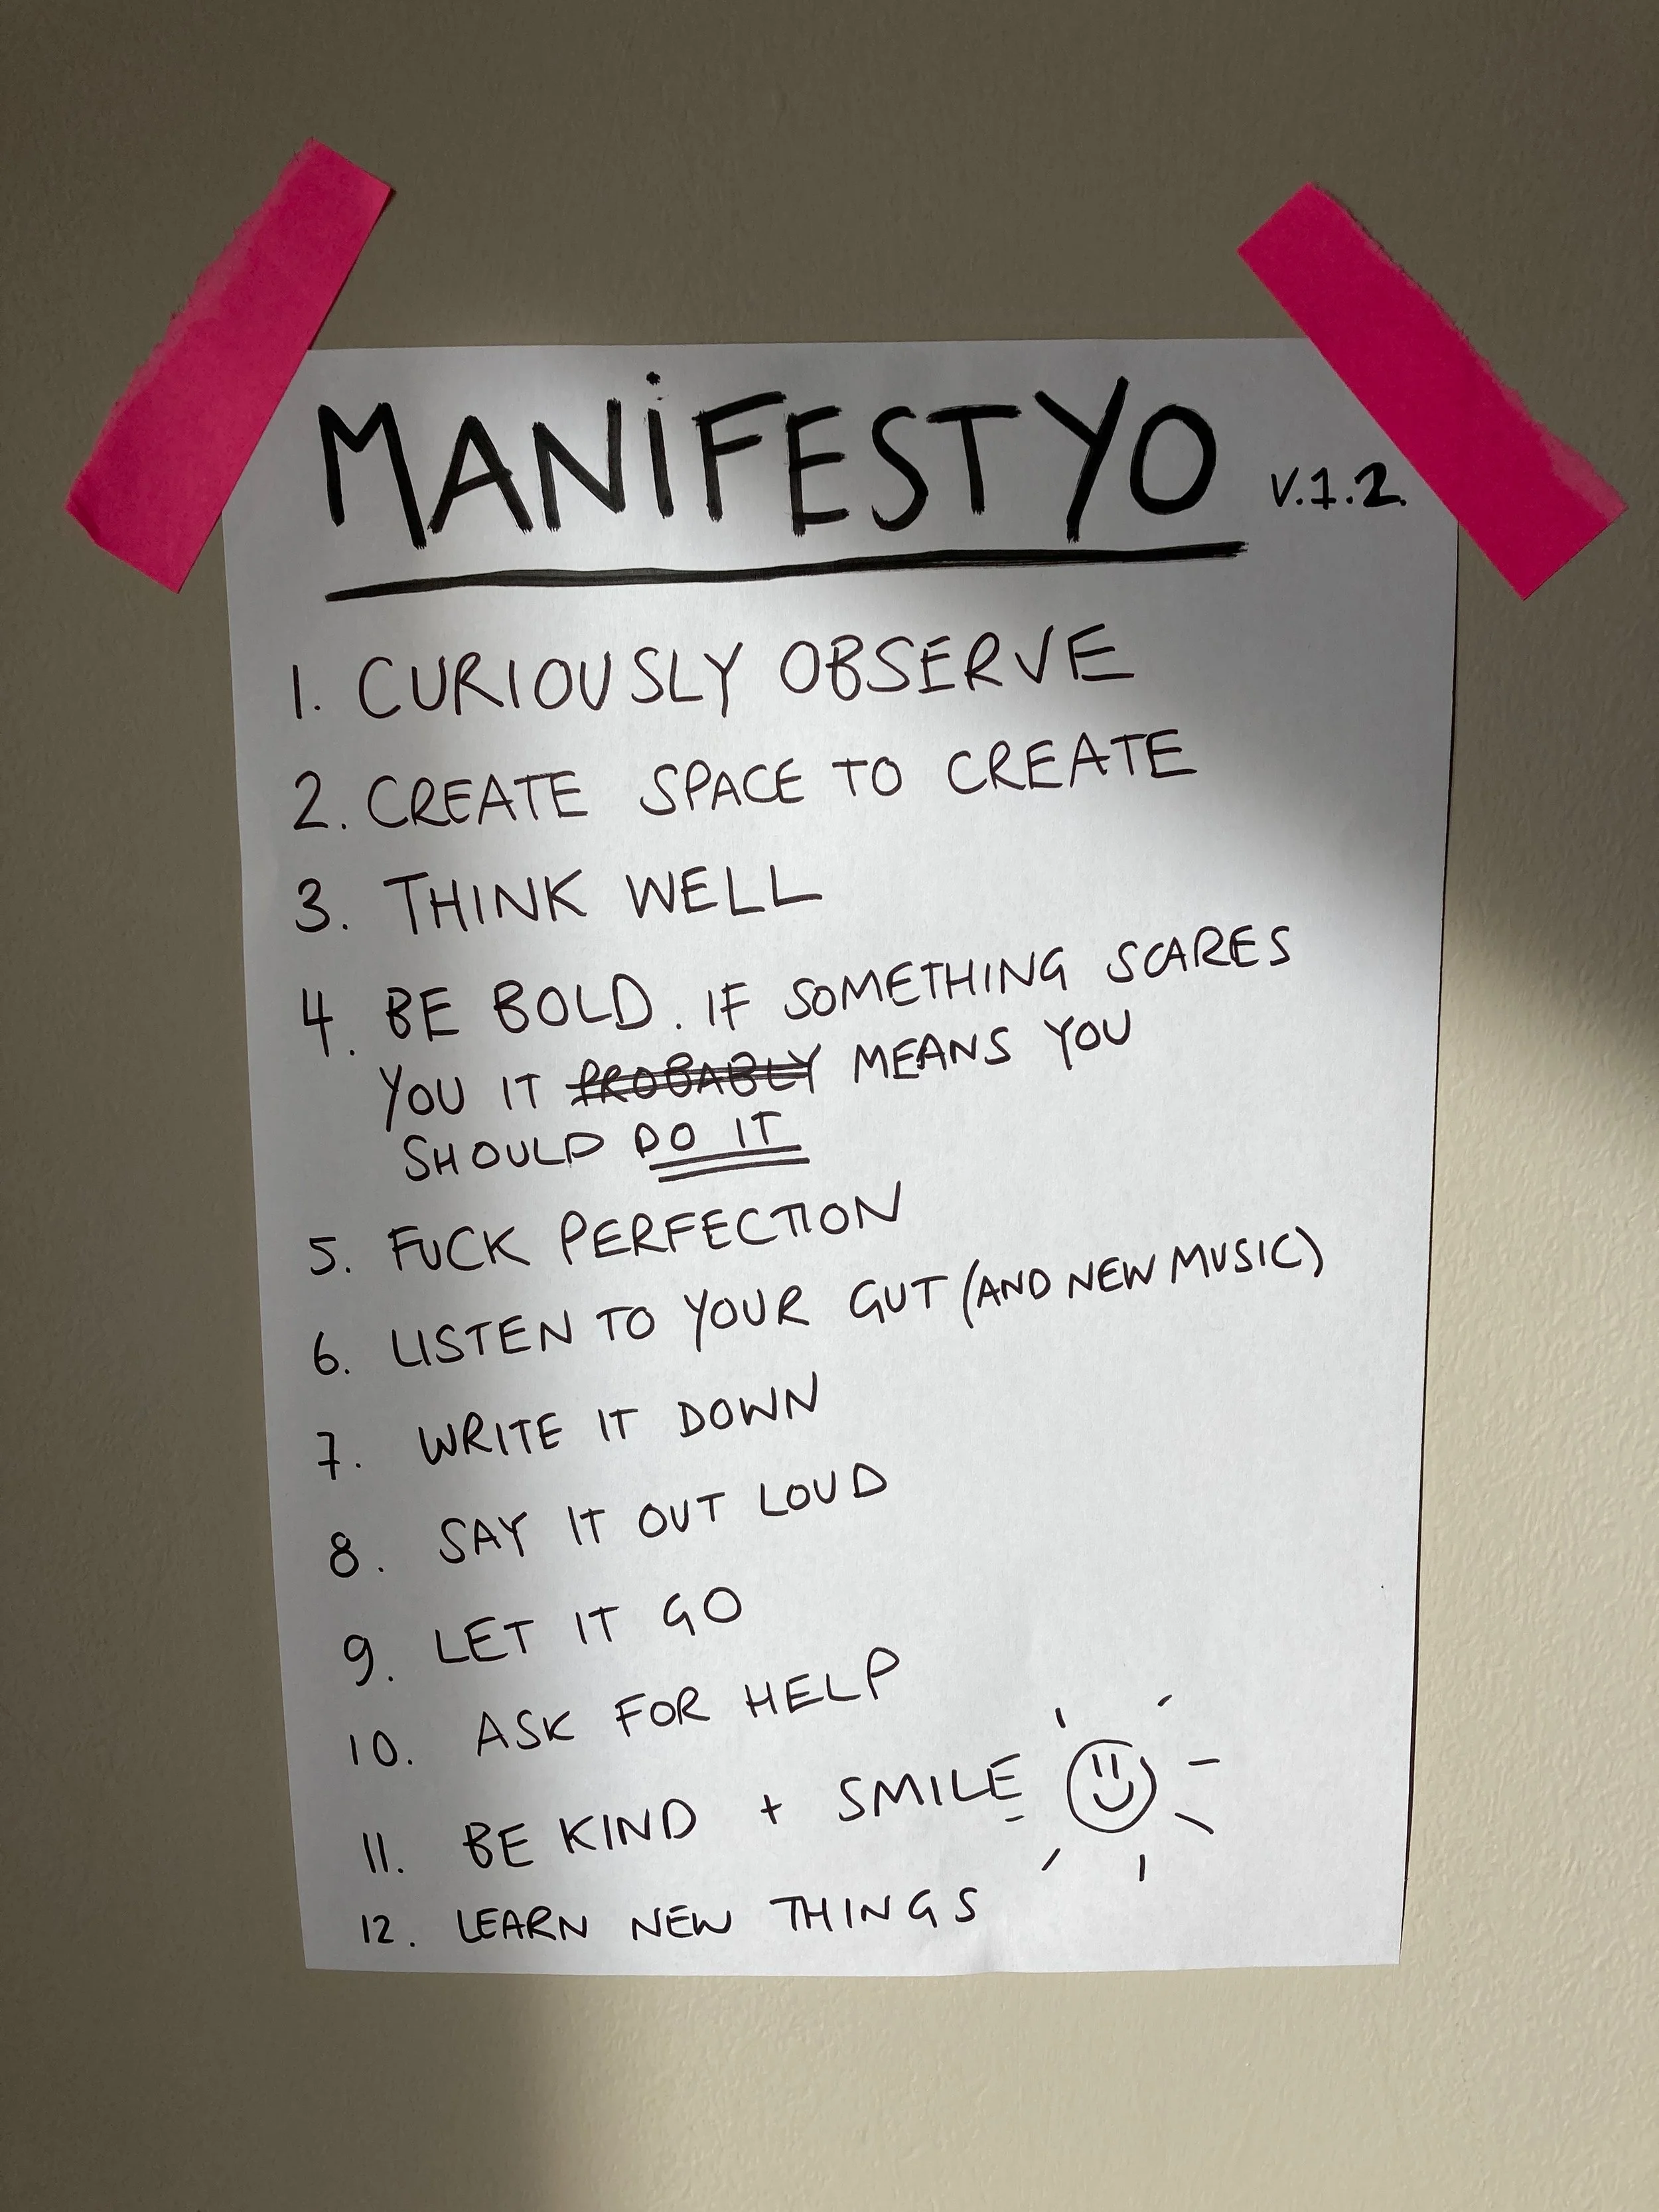 MANiFESTYO V.1.2.
1. CURIOUSLY OBSERVE
2. CREATE SPACE TO CREATE
3. THINK WELL
4. BE BOLD. IF SOMETHING SCARES
YOU IT PROBABLY MEANS YOU
SHOULD DO IT
5. FUCK PERFECTION
6. LISTEN TO YOUR GUT (AND NEW MUSIC)
7. WRITE IT DOWN
8. SAY IT OUT LOUD
9. LET IT GO
10. ASK FOR HELP
11. BE KIND + SMILE
12. LEARN NEW THINGS